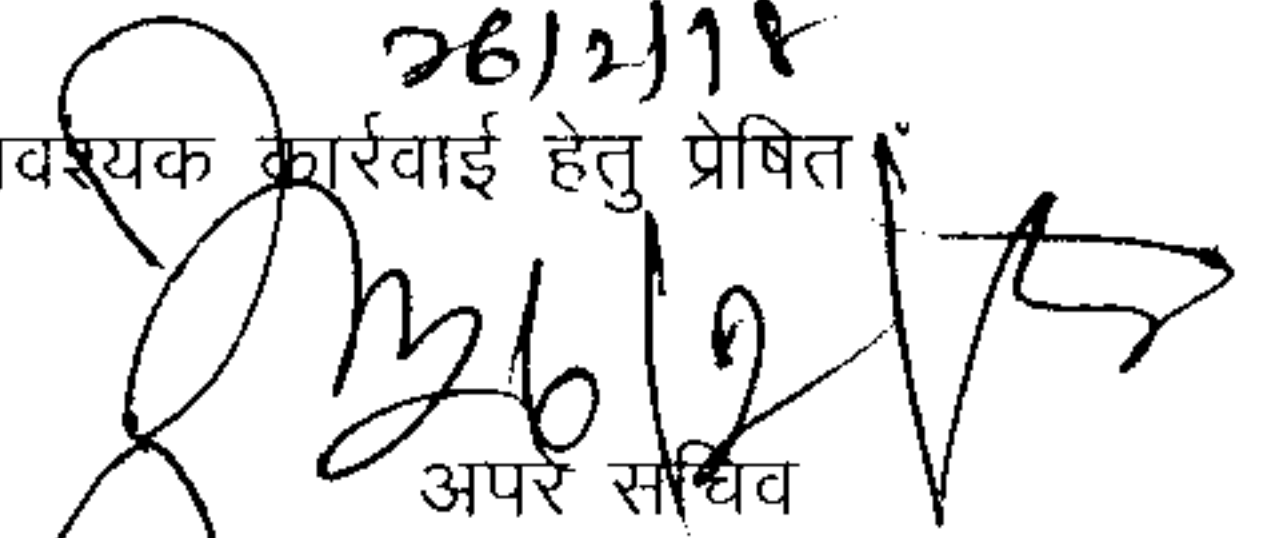 26/2/18
वश्यक कार्रवाई हेतु प्रेषित
26/2/
अपर सचिव